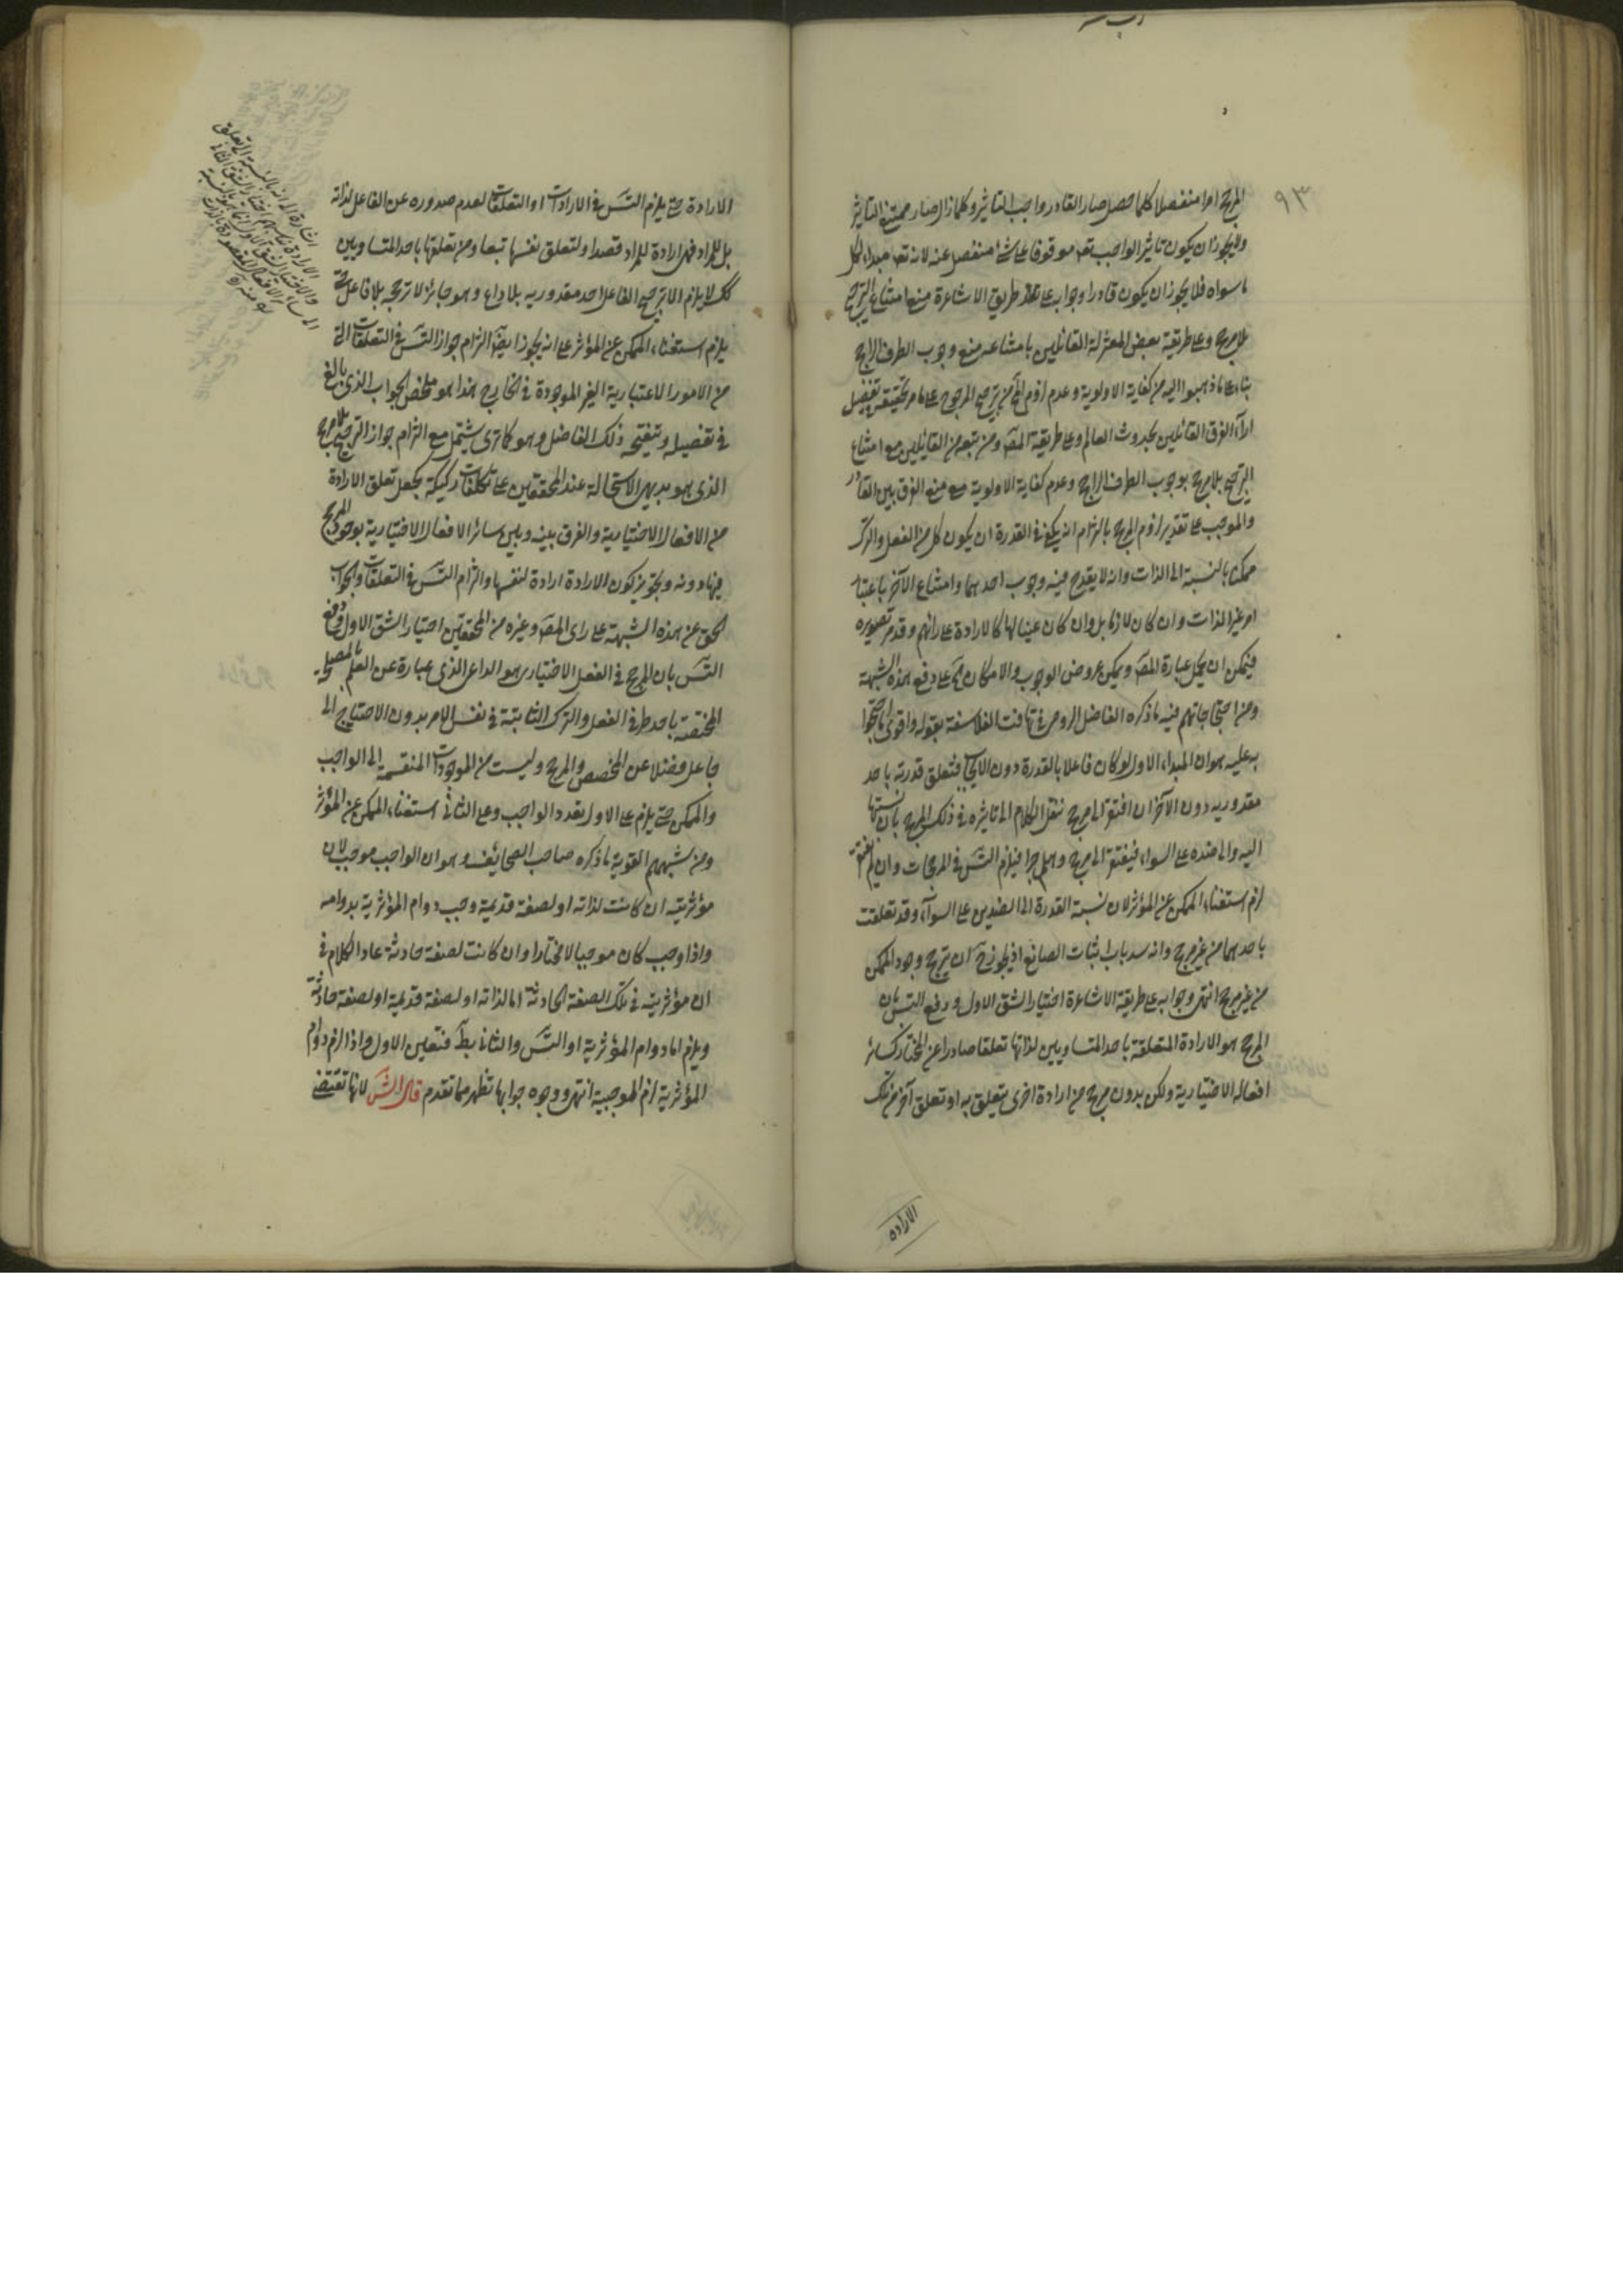 ٩٣
المرجح امرا منفصلا كلما حصل صار القادر واجب التاثير وكلما زال صار ممتنع التاثير
ولا يجوز ان يكون تاثير الواجب تعه موقوفا على شئ منفصل عنه لانه تعه مبداء لكل
ما سواه فلا يجوز ان يكون قادرا وجوابه على طريق الاشاعرة منع امتناع الترجيح
بلا مرجح وعلى طريقة بعض المعتزلة القائلين بامتناعه منع وجوب الطرف الراجح
بناء على ما ذهبوا اليه من كفاية الاولوية وعدم لزوم ترجيح المرجوح على ما مر تحقيقه بتفصيل
اراء الفرق القائلين بحدوث العالم وعلى طريقة المصه ومن تبعه من القائلين مع امتناع
الترجيح بلا مرجح بوجوب الطرف الراجح وعدم كفاية الاولوية منع الفرق بين القادر
والموجب على تقدير لزوم المرجح بالتزام انه يكفي في القدرة ان يكون كل من الفعل والترك
ممكنا بالنسبة الى الذات وانه لا يقدح فيه وجوب احدهما وامتناع الآخر باعتبار
امر غير الذات وان كان لازما بل وان كان عينا لها كالارادة على رائهم وقد مر تصويره
فيمكن ان يحمل عبارة المصه ويمكن عروض الوجوب والامكان على دفع هذه الشبهة
ومن احتجاجاتهم فيه ما ذكره الفاضل الرومى في تهافت الفلاسفة بقوله واقوى ما احتجوا
به عليه هو ان المبداء الاول لو كان فاعلا بالقدرة دون الايجاب فتعلق قدرته باحد
مقدوريه دون الآخر ان افتقر الى مرجح ننقل الكلام الى تاثيره في ذلك المرجح بان نسبتها
اليه والى ضده على السواء فيفتقر الى مرجح وهلم جرا فيلزم التس في المرجحات وان لم يفتقر
لزم استغناء الممكن عن المؤثر لان نسبة القدرة الى الضدين على السواء وقد تعلقت
باحدهما من غير مرجح وانه سد باب اثبات الصانع اذ يجوز ح ان يترجح وجود الممكن
من غير مرجح انتهى وجوابه على طريقة الاشاعرة اختيار الشق الاول ودفع التس بان
المرجح هو الارادة المتعلقة باحد المتساويين لذاتها تعلقا صادرا عن المختار كسائر
افعاله الاختيارية ولكن بدون مرجح من ارادة اخرى يتعلق به او تعلق آخر من تلك
الارادة
الارادة حتى يلزم التس في الارادات او التعلقات لعدم صدوره عن الفاعل لذاته
بل للمراد فهى ارادة للمراد قصدا ولتعلق نفسها تبعا ومن تعلقها باحد المتساويين
كك لا يلزم الا ترجيح الفاعل احد مقدوريه بلا داع وهو جائز لا ترجحه بلا فاعل حتى
يلزم استغناء الممكن عن المؤثر على انه يجوز ايضا التزام جواز التس في التعلقات التى
من الامور الاعتبارية الغير الموجودة في الخارج هذا هو ملخص الجواب الذى بالغ
في تفصيله وتنقيحه ذلك الفاضل وهو كما ترى يشتمل مع التزام جواز الترجيح بلا مرجح
الذى هو بديهى الاستحالة عند المحققين على تكلفات ركيكة بجعل تعلق الارادة
من الافعال الاختيارية والفرق بينه وبين سائر الافعال الاختيارية بوجوب المرجح
فيها دونه وتجويز كون الارادة ارادة لنفسها والتزام التس في التعلقات والجواب
الحق عن هذه الشبهة على راى المصه وغيره من المحققين اختيار الشق الاول ودفع
التس بان المرجح في الفعل الاختيارى هو الداعى الذى عبارة عن العلم بالمصلحة
المختصة باحد طرفى الفعل والترك الثابتة في نفس الامر بدون الاحتياج الى
جاعل فضلا عن المخصص والمرجح وليست من الموجودات المنقسمة الى الواجب
والممكن حتى يلزم على الاول تعدد الواجب وعلى الثانى استغناء الممكن عن المؤثر
ومن شبههم القوية ما ذكره صاحب الصحائف وهو ان الواجب موجب لان
مؤثريته ان كانت لذاته او لصفة قديمة وجب دوام المؤثرية بدوامه
واذا وجب كان موجبا لا مختارا وان كانت لصفة حادثة عاد الكلام في
ان مؤثريته في تلك الصفة الحادثة اما لذاته او لصفة قديمة او لصفة حادثة
ويلزم اما دوام المؤثرية او التس والثانى بط فتعين الاول واذا لزم دوام
المؤثرية لزم الموجبية انتهى ووجوه جوابها تظهر مما تقدم قال الش لانها تقتضى